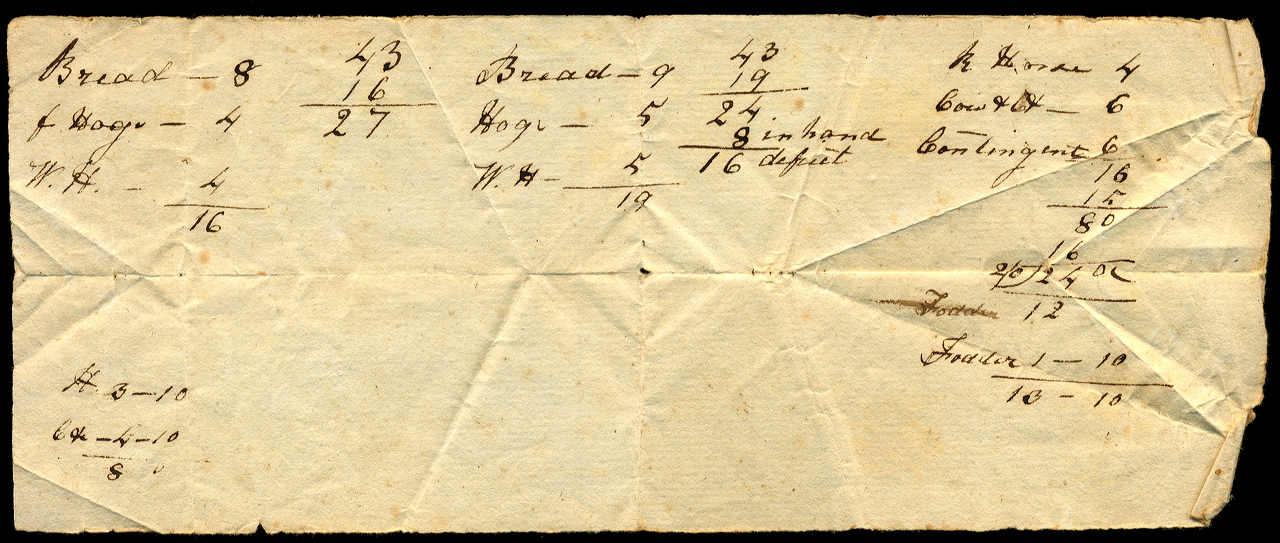 Bread — 8
f Hogs — 4
W. H. — 4
16
43
16
27
Bread — 9
Hogs — 5
W. H — 5
19
43
19
24
8 in hand
16 deficit
R Horse 4
Cow &c — 6
Contingent 6
16
15
80
16
20)240(
12
Fodder
Fodder 1 — 10
13 — 10
H. 3 — 10
C&c — 4 — 10
8